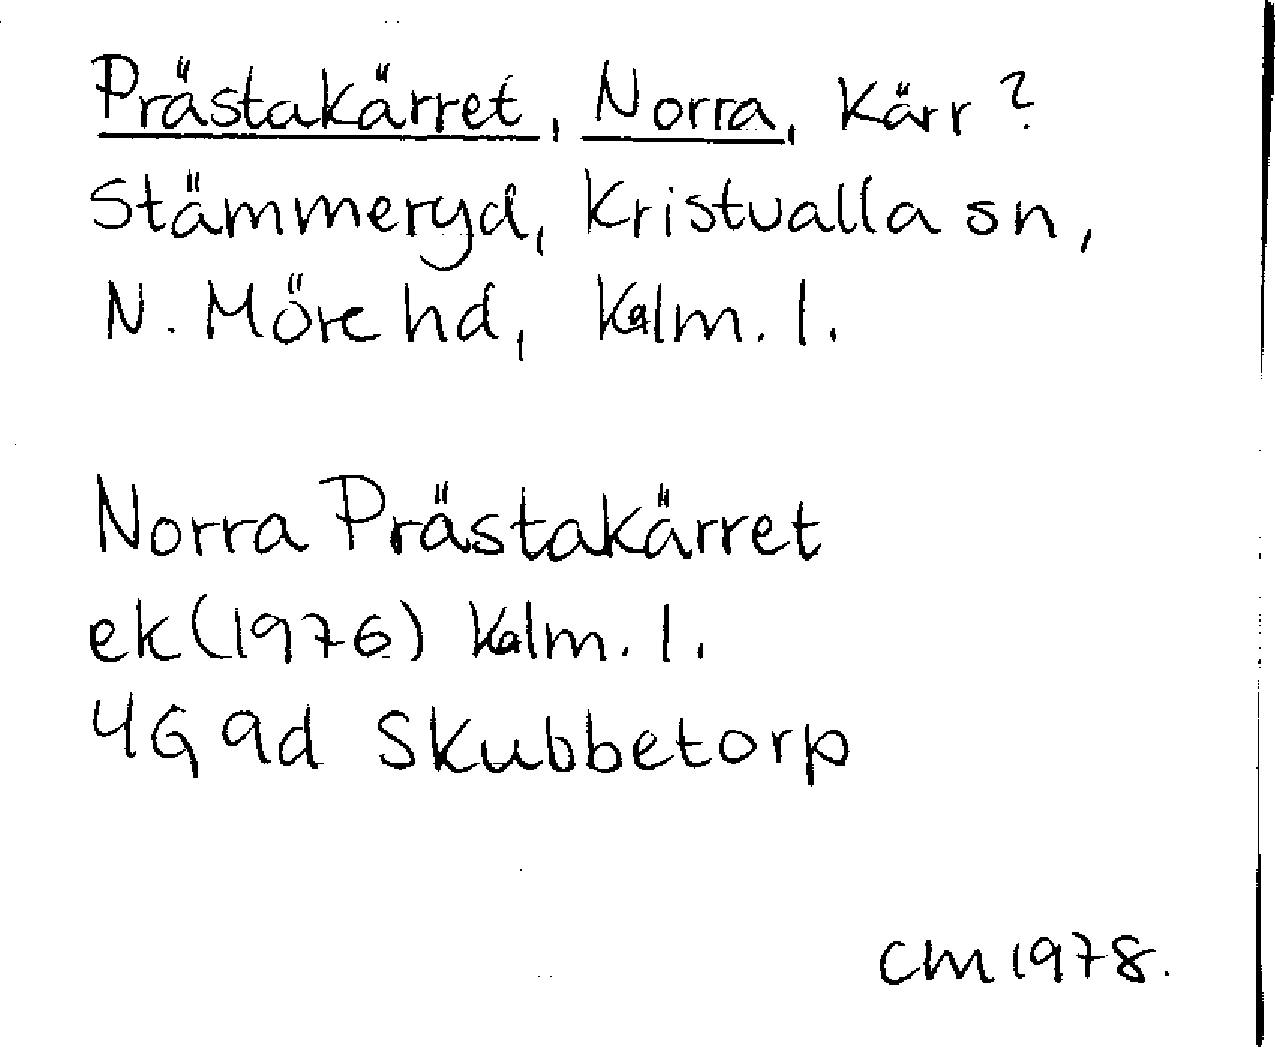 Prästakärret, Norra, Kärr?
Stämmeryd, Kristvalla sn,
N. Möre hd, Kalm. l.
Norra Prästakärret
ek (1976) Kalm. l.
4G 9d Skubbetorp
CM 1978.